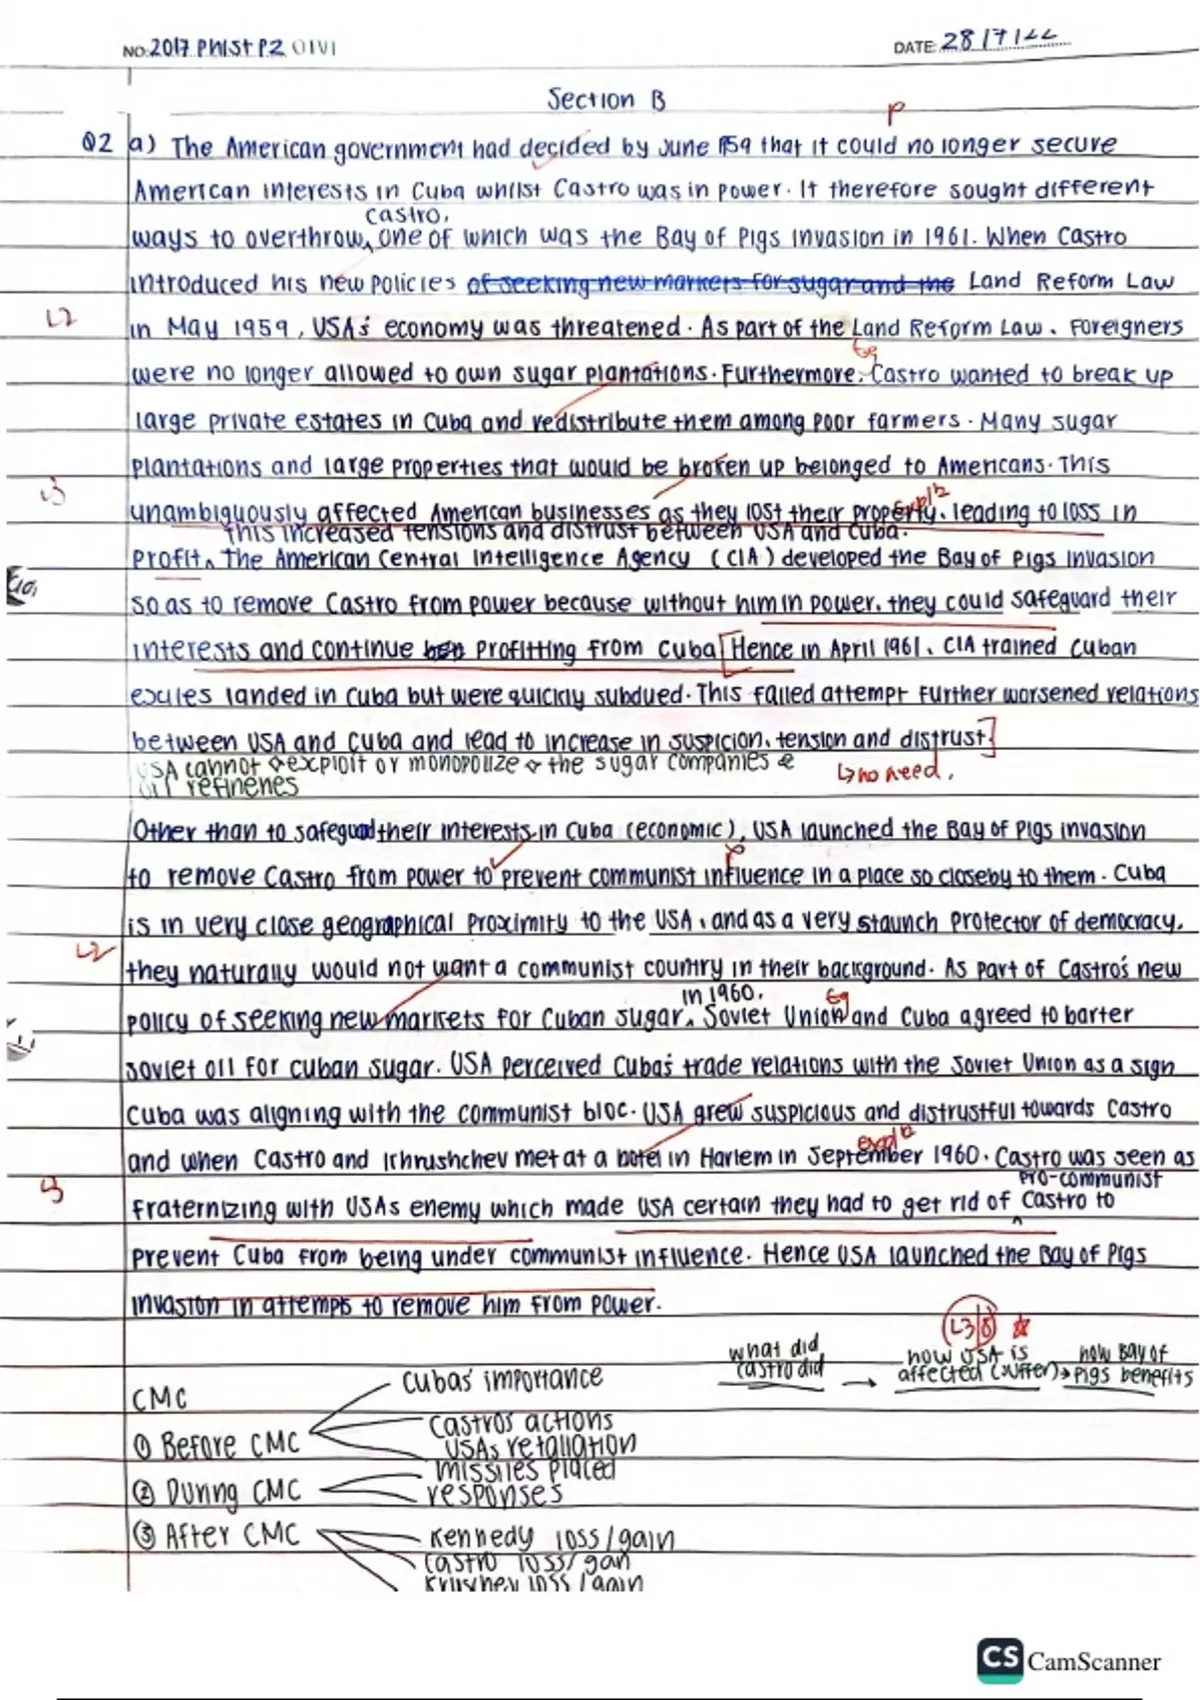 NO: 2017 PHIST P2 O1V1
DATE: 28/7/22
Section B
P
Q2 a) The American government had decided by June 1959 that it could no longer secure
American interests in Cuba whilst Castro was in power. It therefore sought different
castro,
ways to overthrow, one of which was the Bay of Pigs invasion in 1961. When Castro
introduced his new policies of seeking new markets for sugar and the Land Reform Law
L2
in May 1959, USA's economy was threatened. As part of the Land Reform Law, foreigners
Eg
were no longer allowed to own sugar plantations. Furthermore, Castro wanted to break up
large private estates in Cuba and redistribute them among poor farmers. Many sugar
plantations and large properties that would be broken up belonged to Americans. This
L3
expl
unambiguously affected American businesses as they lost their property, leading to loss in
this increased tensions and distrust between USA and Cuba.
profit. The American Central Intelligence Agency (CIA) developed the Bay of Pigs invasion
so as to remove Castro from power because without him in power, they could safeguard their
interests and continue profitting from Cuba [Hence in April 1961, CIA trained Cuban
exiles landed in Cuba but were quickly subdued. This failed attempt further worsened relations
between USA and Cuba and lead to increase in suspicion, tension and distrust.]
USA cannot exploit or monopolize the sugar companies &
oil refineries
↳ no need.
Other than to safeguard their interests in Cuba (economic), USA launched the Bay of Pigs invasion
P
to remove Castro from power to prevent communist influence in a place so closeby to them. Cuba
is in very close geographical proximity to the USA, and as a very staunch protector of democracy,
L2
they naturally would not want a communist country in their background. As part of Castro's new
in 1960,
Eg
policy of seeking new markets for Cuban sugar, Soviet Union and Cuba agreed to barter
soviet oil for cuban sugar. USA perceived Cuba's trade relations with the Soviet Union as a sign
Cuba was aligning with the communist bloc. USA grew suspicious and distrustful towards Castro
expl
and when Castro and Khrushchev met at a hotel in Harlem in September 1960. Castro was seen as
pro-communist
L3
fraternizing with USAs enemy which made USA certain they had to get rid of Castro to
prevent Cuba from being under communist influence. Hence USA launched the Bay of Pigs
invasion in attempts to remove him from power.
L3/8
what did castro did → how USA is affected (suffer) → how Bay of Pigs benefits
CMC
① Before CMC
Cubas' importance
Castros actions
USAs retaliation
② During CMC
missiles placed
responses
③ After CMC
Kennedy loss/gain
Castro loss/gan
Krushev loss/gain
CS CamScanner